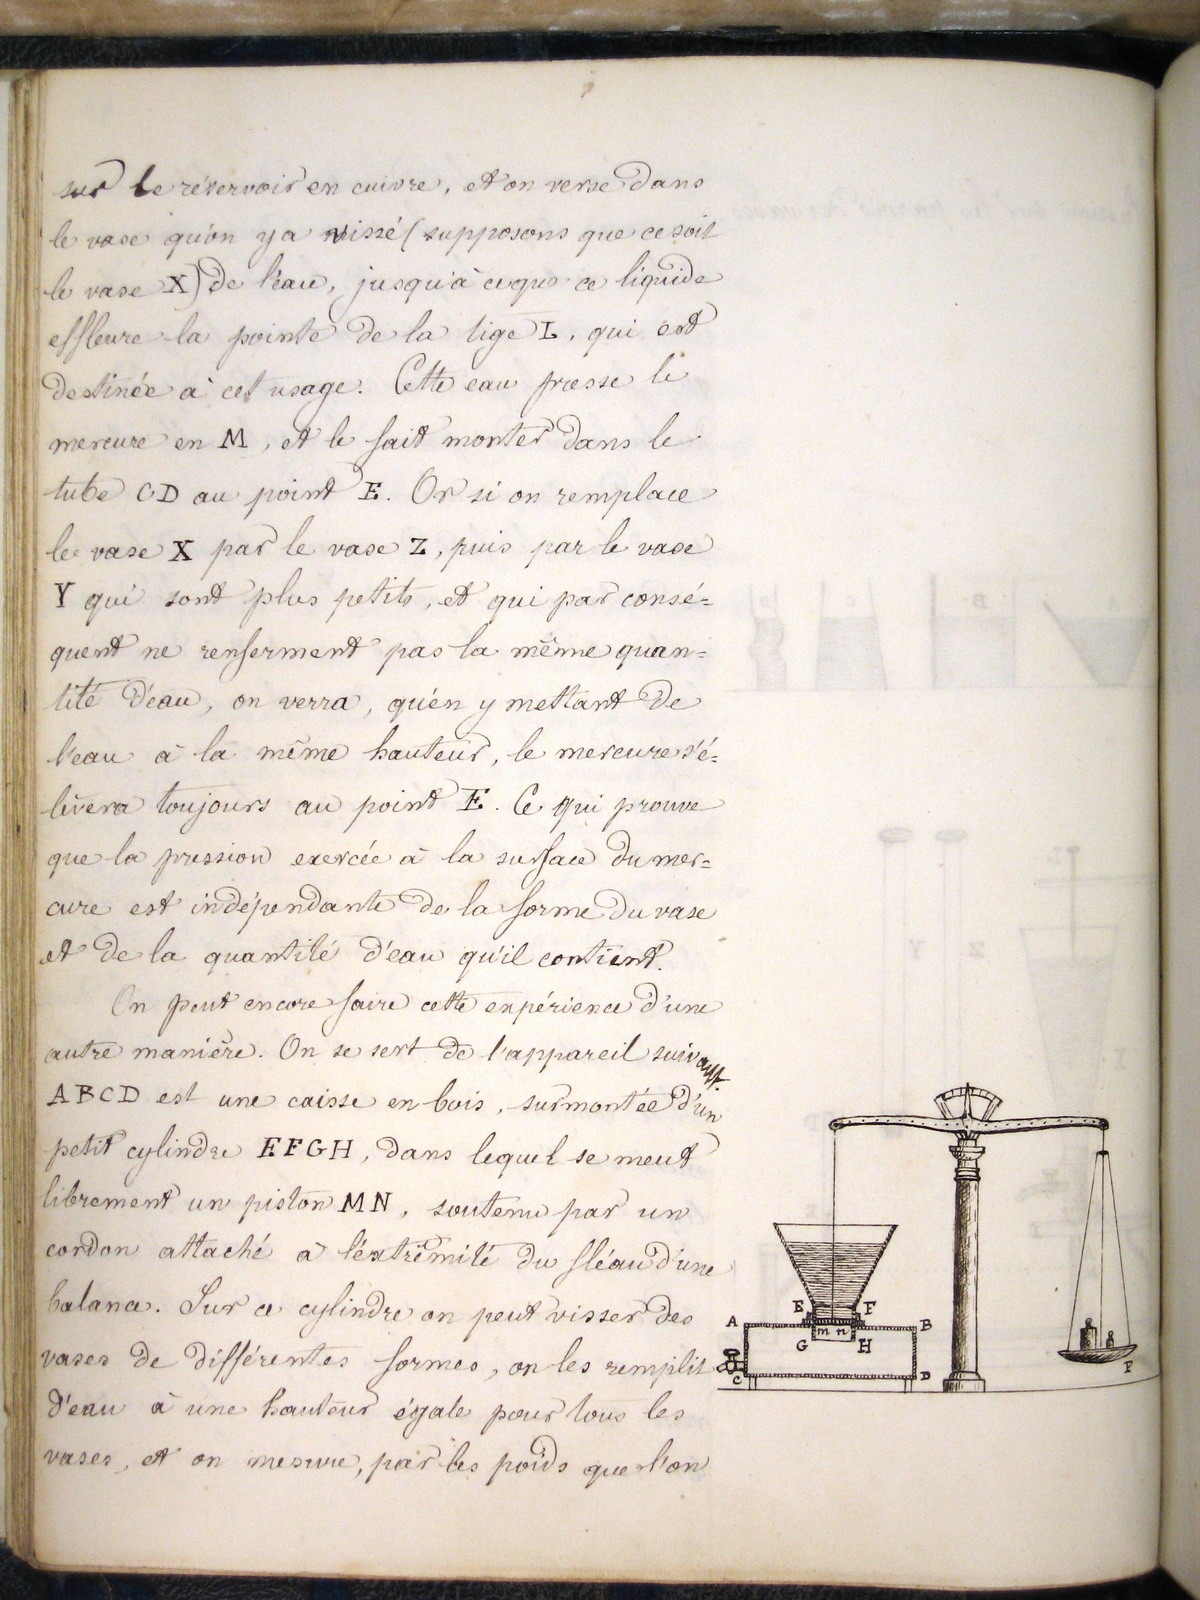 sur le réservoir en cuivre, et on verse dans
le vase qu'on y a vissé (supposons que ce soit
le vase X) de l'eau, jusqu'à ce que ce liquide
effleure la pointe de la tige L, qui est
destinée à cet usage. Cette eau presse le
mercure en M, et le fait monter dans le
tube CD au point E. Or si on remplace
le vase X par le vase Z, puis par le vase
Y qui sont plus petits, et qui par consé=
quent ne renferment pas la même quan=
tité d'eau, on verra, qu'en y mettant de
l'eau à la même hauteur, le mercure s'é=
lèvera toujours au point E. Ce qui prouve
que la pression exercée à la surface du mer=
cure est indépendante de la forme du vase
et de la quantité d'eau qu'il contient.
On peut encore faire cette expérience d'une
autre manière. On se sert de l'appareil suivant.
ABCD est une caisse en bois, surmontée d'un
petit cylindre EFGH, dans lequel se meut
librement un piston MN, soutenu par un
cordon attaché à l'extrêmité du fléau d'une
balance. Sur ce cylindre on peut visser des
vases de différentes formes, on les remplit
d'eau à une hauteur égale pour tous les
vases, et on mesure, par les poids que l'on
E F
A B
m n
G H
C D
P